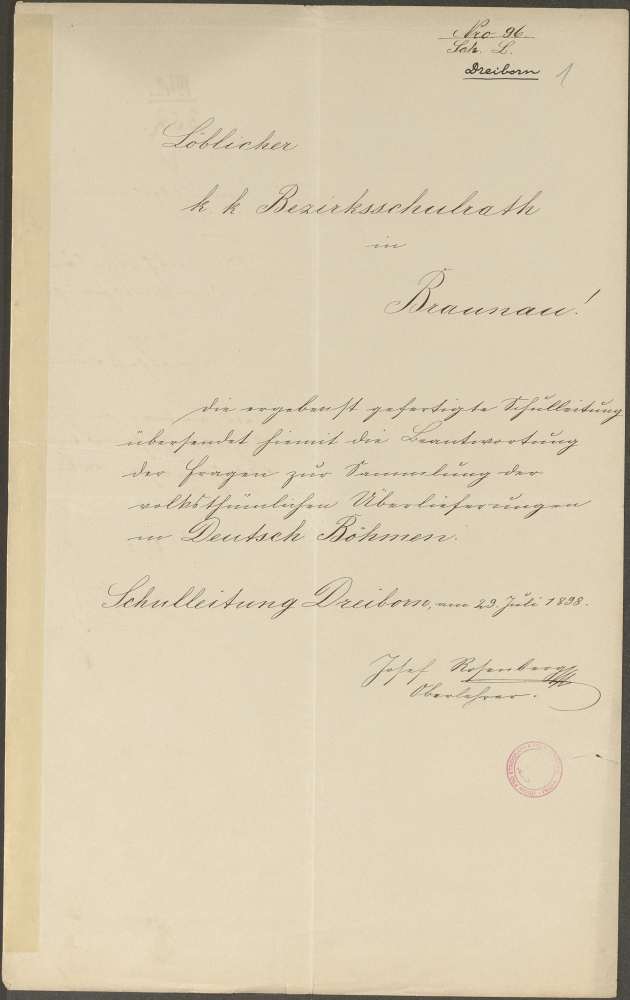 Nro 96.
Sch. L.
Dreiborn
1
Löblicher
k. k. Bezirksschulrath
in
Braunau!
Die ergebenst gefertigte Schulleitung
übersendet hiemit die Beantwortung
der Fragen zur Sammlung der
volksthümlichen Überlieferungen
in Deutsch Böhmen.
Schulleitung Dreiborn, am 29. Juli 1898.
Josef Rosenberg
Oberlehrer.